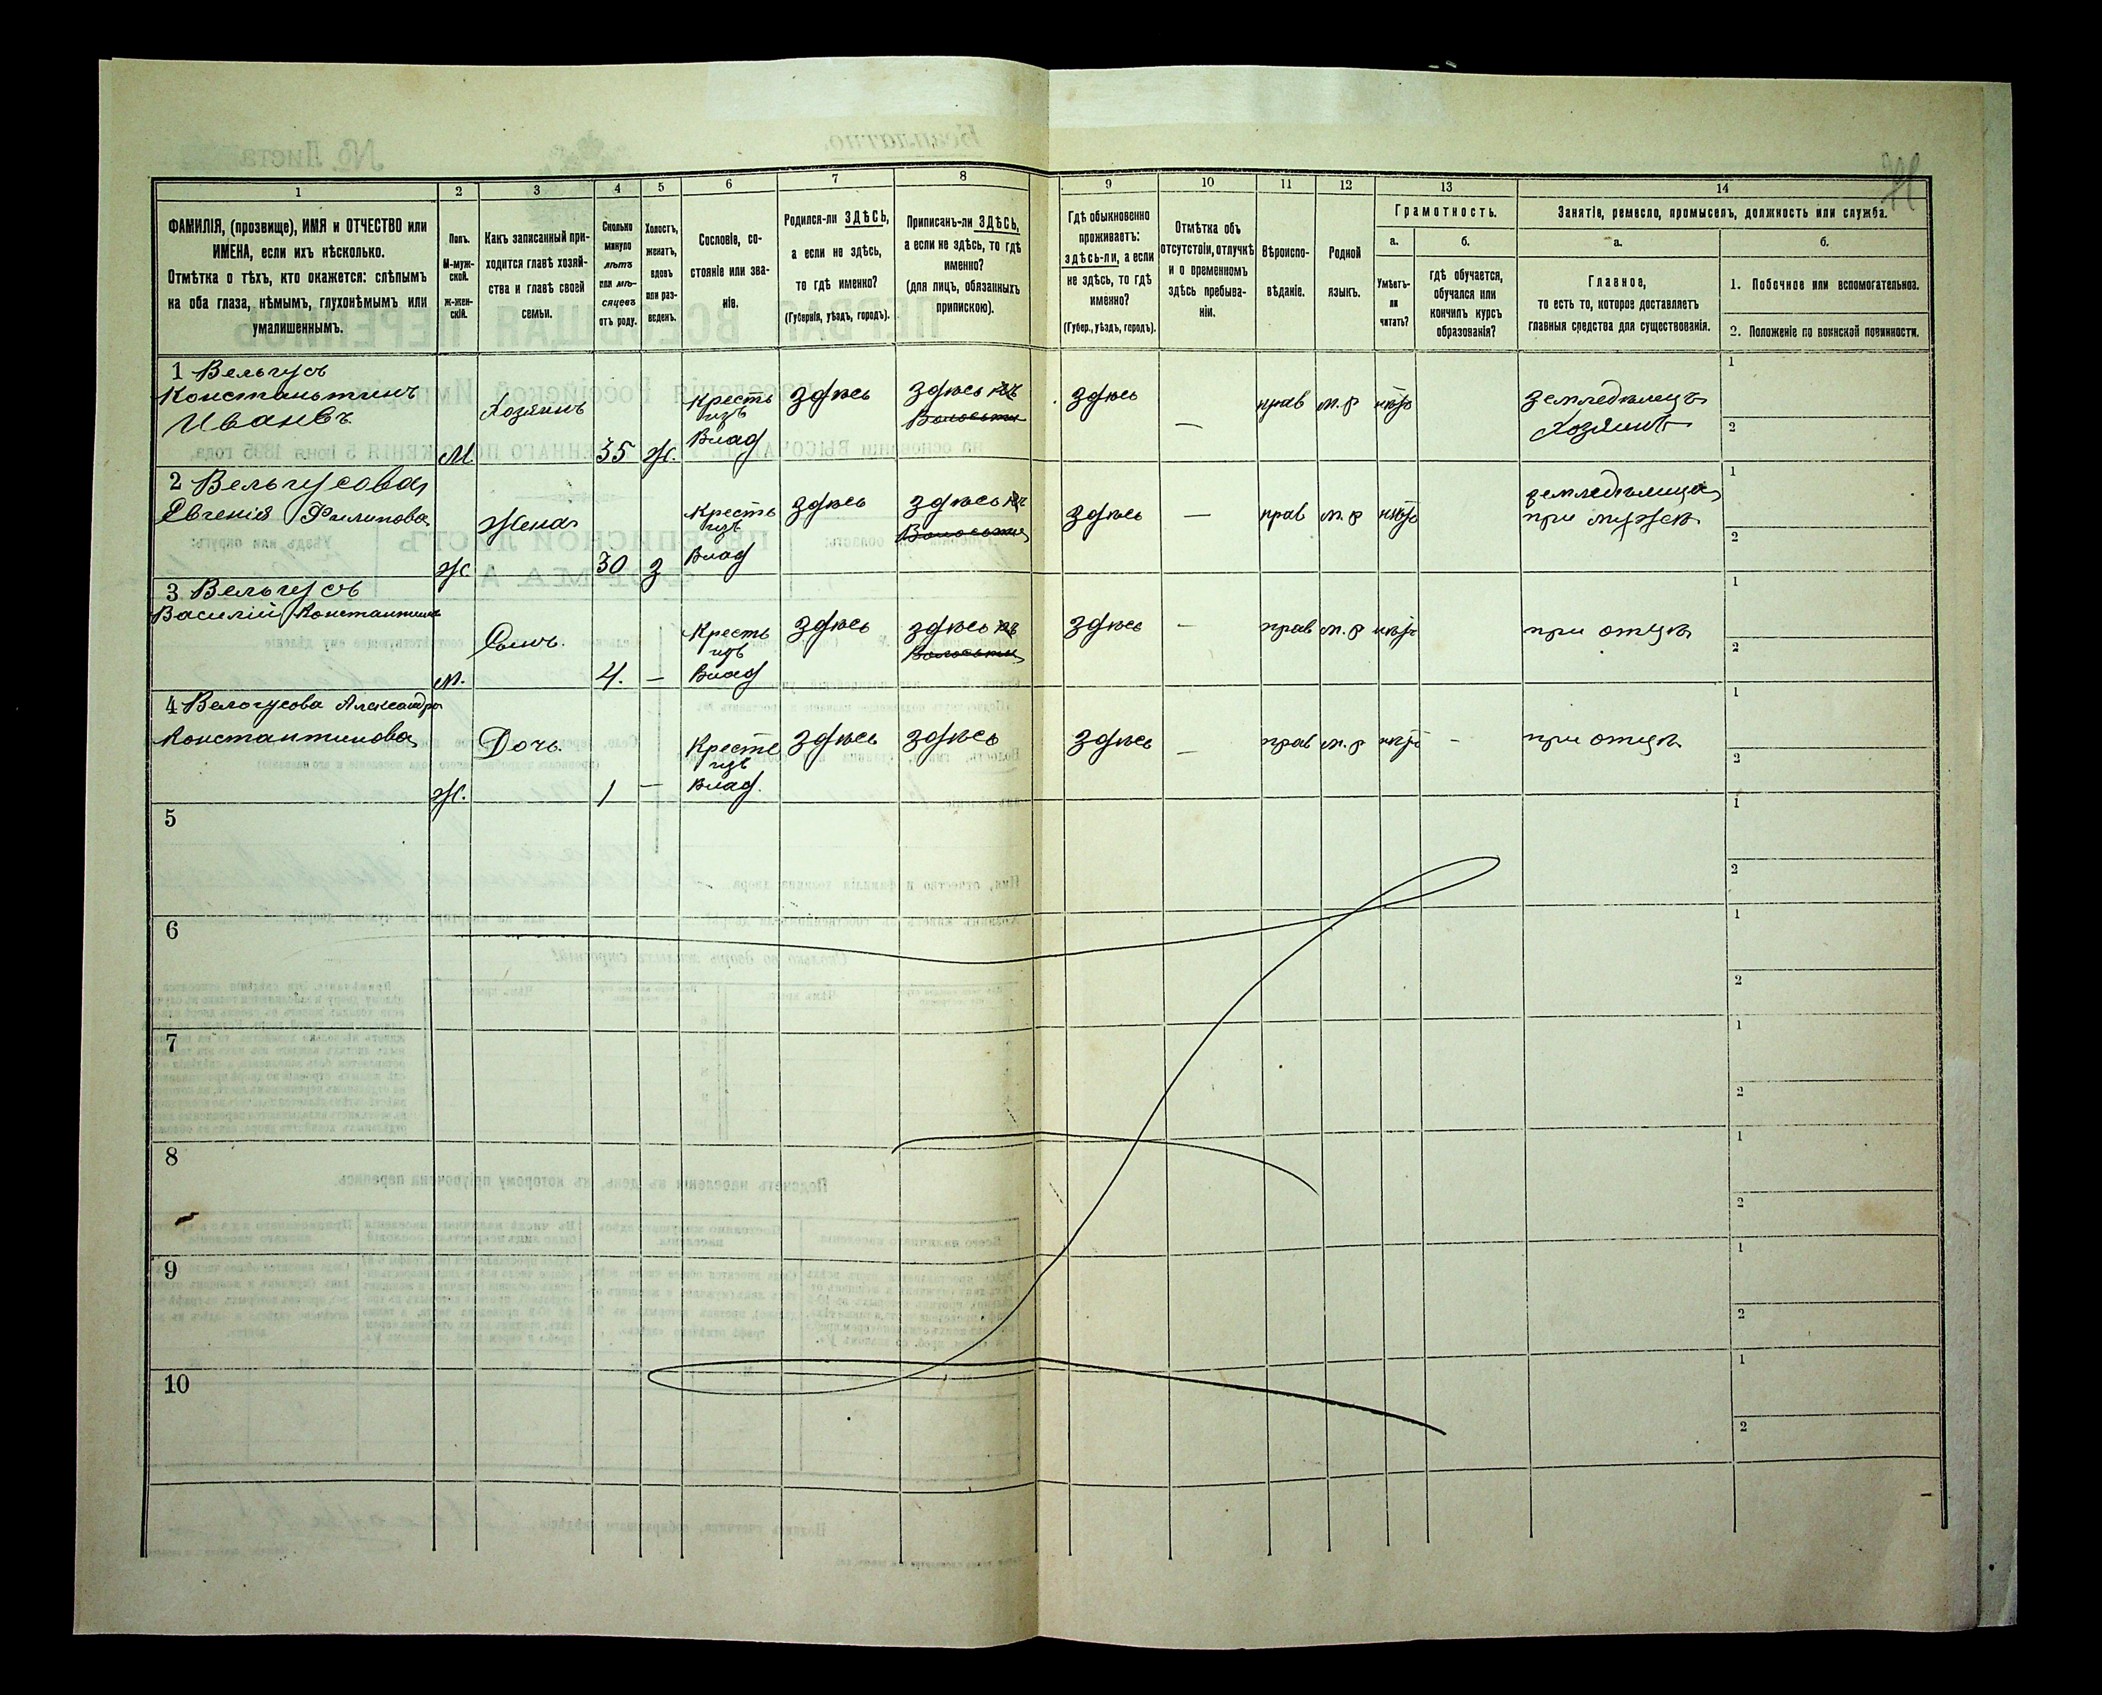 1 2 3 4 5 6 7 8 9 10 11 12 13 14
ФАМИЛІЯ, (прозвище), ИМЯ и ОТЧЕСТВО или
ИМЕНА, если ихъ нѣсколько.
Отмѣтка о тѣхъ, кто окажется: слѣпымъ
на оба глаза, нѣмымъ, глухонѣмымъ или
умалишеннымъ.
Полъ.
М-муж-
ской.
Ж-жен-
скій.
Какъ записанный при-
ходится главѣ хозяй-
ства и главѣ своей
семьи.
Сколько
минуло
лѣтъ
или мѣ-
сяцевъ
отъ роду.
Холостъ,
женатъ,
вдовъ
или раз-
веденъ.
Сословіе, со-
стояніе или зва-
ніе.
Родился-ли ЗДѢСЬ,
а если не здѣсь,
то гдѣ именно?
(Губернія, уѣздъ, городъ).
Приписанъ-ли ЗДѢСЬ,
а если не здѣсь, то гдѣ
именно?
(для лицъ, обязанныхъ
припискою).
Гдѣ обыкновенно
проживаетъ:
здѣсь-ли, а если
не здѣсь, то гдѣ
именно?
(Губер., уѣздъ, городъ).
Отмѣтка объ
отсутствіи, отлучкѣ
и о временномъ
здѣсь пребыва-
ніи.
Вѣроиспо-
вѣданіе.
Родной
языкъ.
Грамотность.
а.
Умѣетъ-
ли
читать?
б.
гдѣ обучается,
обучался или
кончилъ курсъ
образованія?
Занятіе, ремесло, промыселъ, должность или служба.
а.
Главное,
то есть то, которое доставляетъ
главныя средства для существованія.
б.
1. Побочное или вспомогательное.
2. Положеніе по воинской повинности.
1 Вельгусъ
Константинъ
Ивановъ
М
Хозяинъ
35
Ж.
Кресть
изъ
Влад
здѣсь
здѣсь
здѣсь
—
прав
м.р
нѣтъ
земледѣлецъ
Хозяинъ
1
2
2 Вельгусова
Евгенія Филипова
Ж
Жена
30
З
Кресть
изъ
Влад
здѣсь
здѣсь
здѣсь
—
прав
м.р
нѣтъ
земледѣлица
при мужѣ
1
2
3 Вельгусъ
Василій Константин
м.
Сынъ.
4.
—
Кресть
изъ
Влад
здѣсь
здѣсь
здѣсь
—
прав
м.р
нѣтъ
при отцѣ
1
2
4 Велогусова Александра
Константинова
Ж.
Дочь
1
—
Кресть
изъ
Влад.
здѣсь
здѣсь
здѣсь
—
прав
м.р
нѣтъ
—
при отцѣ
1
2
5
1
2
6
1
2
7
1
2
8
1
2
9
1
2
10
1
2